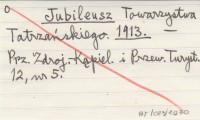 Jubileusz Towarzystwa
Tatrzańskiego. 1913. —
Prz. Zdroj.-Kąpiel. i Przew. Turyst.
12, nr 5.